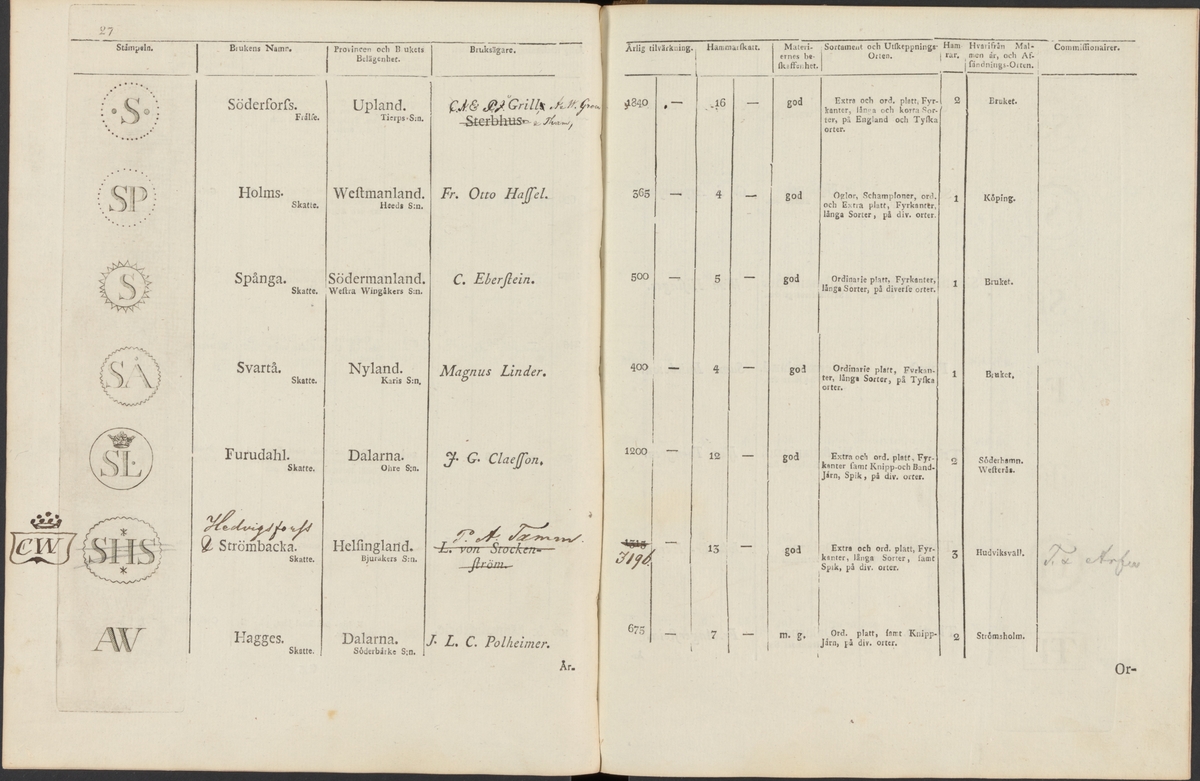 27
Stämpeln.
Brukens Namn.
Provincen och Brukets
Belägenhet.
Bruksägare.
Årlig tilvärkning.
Hammarskatt.
Materi-
ernes be-
skaffenhet.
Sortament och Utskeppnings-
Orten.
Ham-
rar.
Hvarifrån Mal-
men är, och Af-
sändnings-Orten.
Commissionairer.
·S·
Söderforss.
Frälse.
Upland.
Tierps-S:n.
C. A & Grill
Sterbhus
1840 — 16 —
god
Extra och ord. platt, Fyr-
kanter, långa och korta Sor-
ter, på England och Tyska
orter.
2
Bruket.
SP
Holms.
Skatte.
Westmanland.
Heeds S:n.
Fr. Otto Hassel.
365 — 4 —
god
Oglor, Schamploner, ord.
och Extra platt, Fyrkanter,
långa Sorter, på div. orter.
1
Köping.
S
Spånga.
Skatte.
Södermanland.
Westra Wingåkers S:n.
C. Eberstein.
500 — 5 —
god
Ordinarie platt, Fyrkanter,
långa Sorter, på diverse orter.
1
Bruket.
SÅ
Svartå.
Skatte.
Nyland.
Karis S:n.
Magnus Linder.
400 — 4 —
god
Ordinarie platt, Fyrkan-
ter, långa Sorter, på Tyska
orter.
1
Bruket.
SL
Furudahl.
Skatte.
Dalarna.
Ohre S:n.
J. G. Claesson.
1200 — 12 —
god
Extra och ord. platt, Fyr-
kanter samt Knipp-och Band-
Järn, Spik, på div. orter.
2
Söderhamn.
Westerås.
CW
SHS
Hedvigsforss
& Strömbacka.
Skatte.
Helsingland.
Bjuråkers S:n.
P. A. Tamm
L. von Stocken-
ström.
1315
3196.
— 13 —
god
Extra och ord. platt, Fyr-
kanter, långa Sorter, samt
Spik, på div. orter.
3
Hudviksvall.
AW
Hagges.
Skatte.
Dalarna.
Söderbärke S:n.
J. L. C. Polheimer.
675 — 7 —
m. g.
Ord. platt, samt Knipp-
Järn, på div. orter.
2
Strömsholm.
År-
Or-